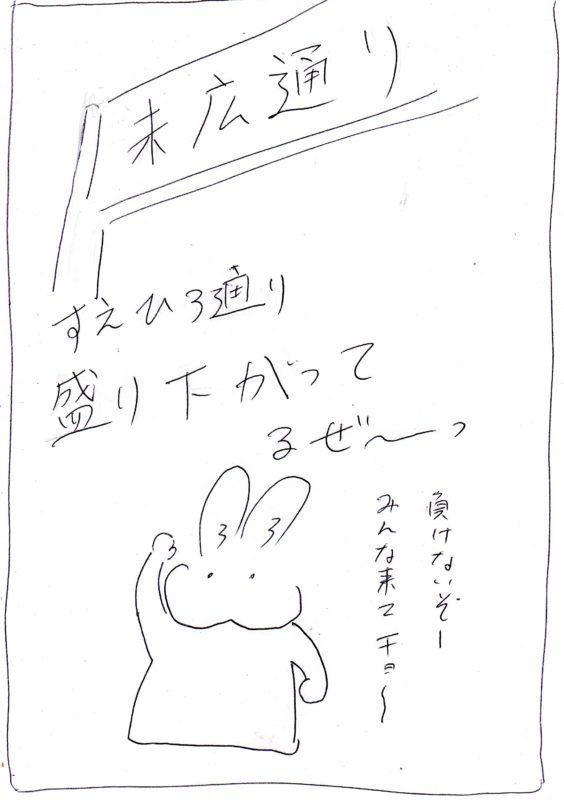 末広通り
すえひろ通り
盛り下がって
るぜ〜っ
負けないぞー
みんな来てチョ〜